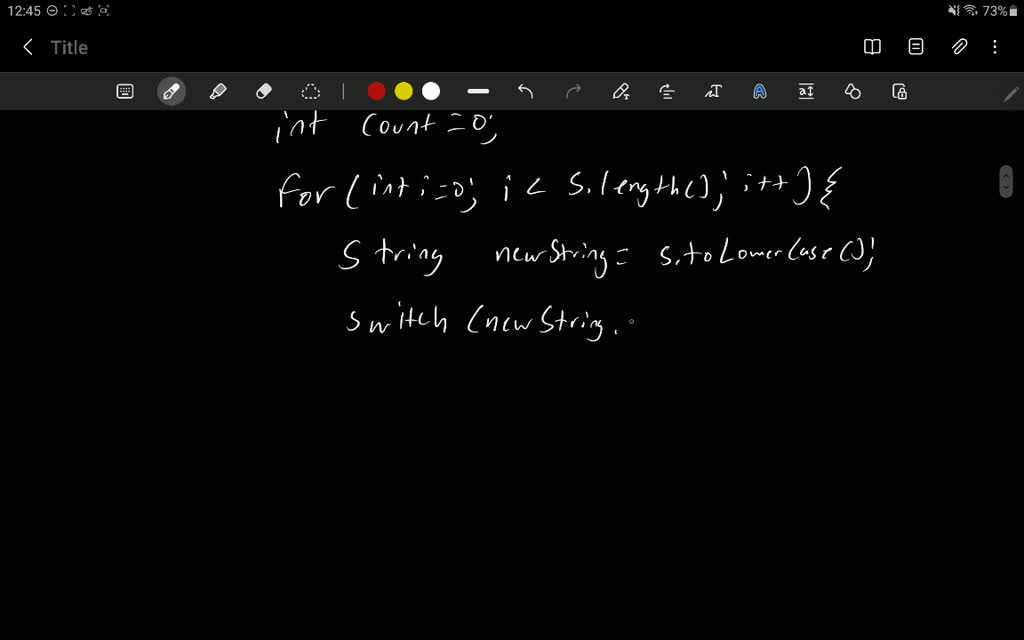 12:45 73%
Title
int count=0;
for(int i=0; i < s.length(); i++){
String newString= s.toLowerCase();
switch (newString.